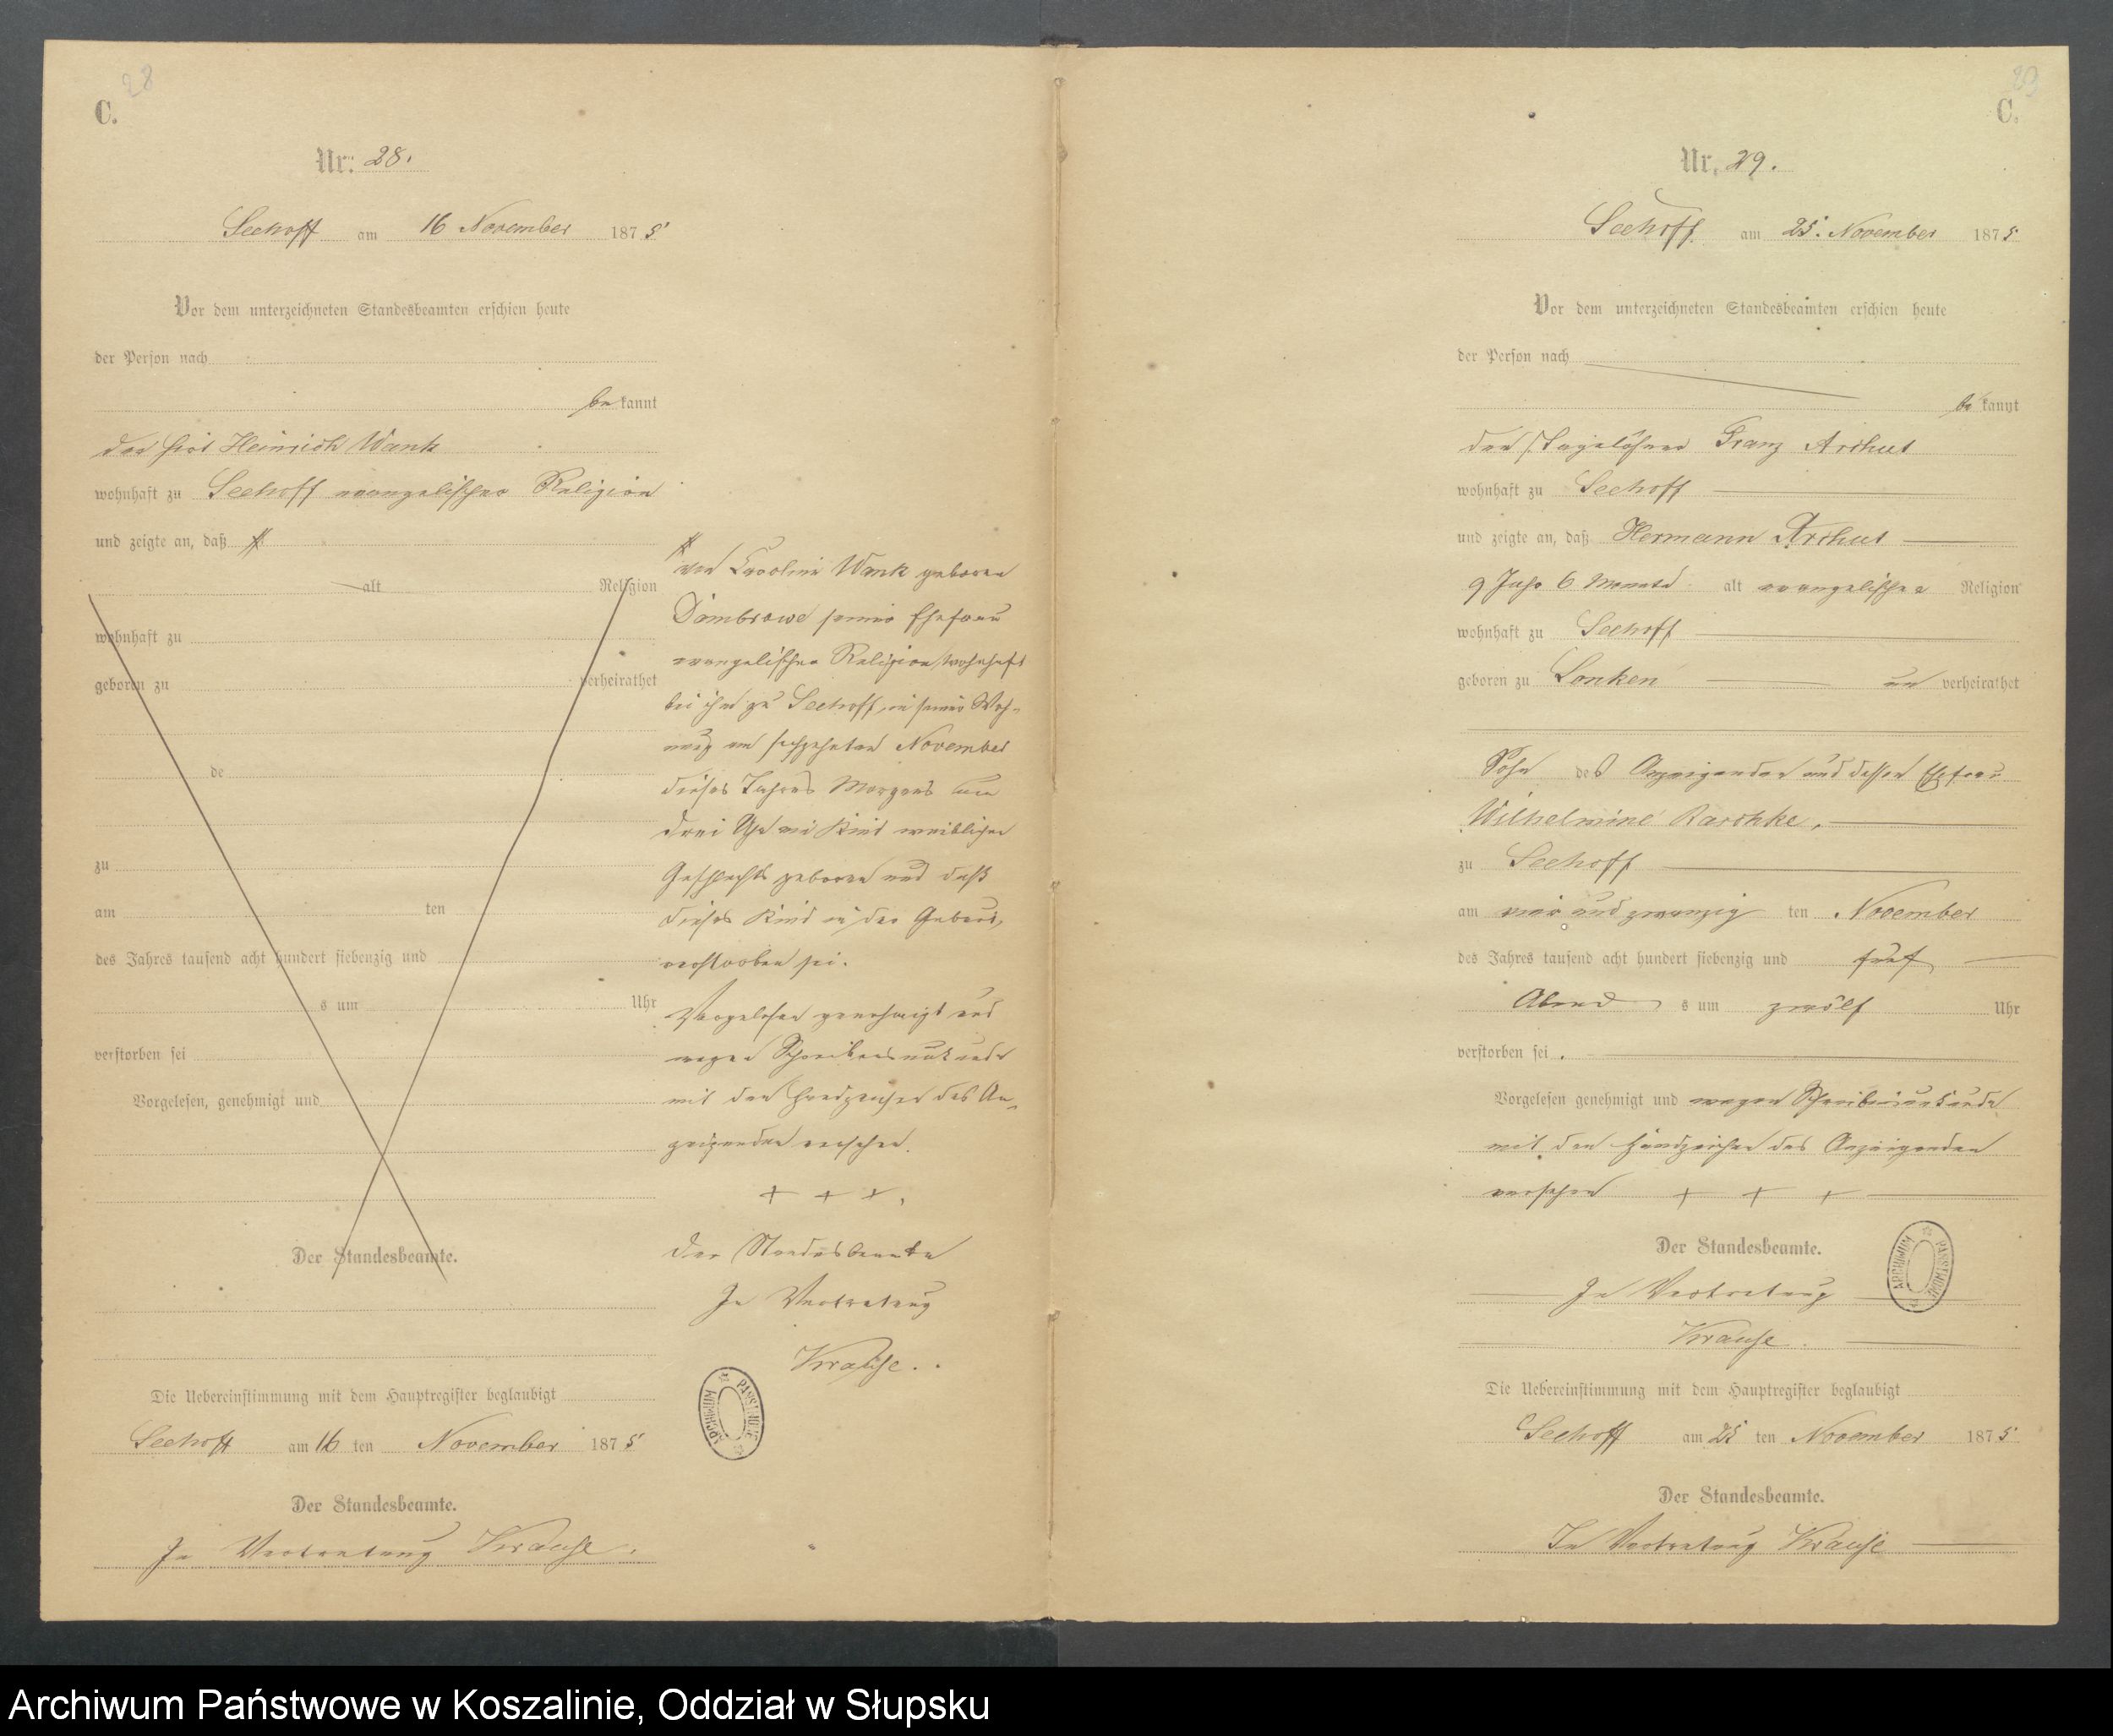 28
C.
Nr. 28.
Seehoff am 16 November 1875
Vor dem unterzeichneten Standesbeamten erschien heute
der Person nach
be kannt
der Hirt Heinrich Wank
wohnhaft zu Seehoff evangelischer Religion
und zeigte an, daß #
alt Religion
wohnhaft zu
geboren zu verheirathet
de
zu
am ten
des Jahres tausend acht hundert siebenzig und
s um Uhr
verstorben sei
Vorgelesen, genehmigt und
Der Standesbeamte.
# von Caroline Wank geborene
Dombrowe seiner Ehefrau
evangelischer Religion, wohnhaft
bei ihm zu Seehoff, in seiner Woh-
nung am sechzehnten November
dieses Jahres Morgens um
drei Uhr ein Kind weiblichen
Geschlechts geboren und daß
dieses Kind in der Geburt,
verstorben sei.
Vorgelesen genehmigt und
wegen Schreibensunkunde
mit dem Handzeichen des An-
zeigenden versehen.
+ + +.
Der Standesbeamte
In Vertretung
Krause.
ARCHIWUM PAŃSTWOWE
Die Uebereinstimmung mit dem Hauptregister beglaubigt
Seehoff am 16 ten November 1875
Der Standesbeamte.
In Vertretung Krause.
C.
Nr. 29.
Seehoff am 25. November 1875
Vor dem unterzeichneten Standesbeamten erschien heute
der Person nach
be kannt
der Tagelöhner Franz Arthut
wohnhaft zu Seehoff
und zeigte an, daß Hermann Arthut
9 Jahr 6 Monate alt evangelischer Religion
wohnhaft zu Seehoff
geboren zu Lonken un verheirathet
Sohn des Anzeigenden und dessen Ehefrau
Wilhelmine Raschke,
zu Seehoff
am vier und zwanzig ten November
des Jahres tausend acht hundert siebenzig und fünf
Abend s um zwölf Uhr
verstorben sei.
Vorgelesen genehmigt und wegen Schreibensunkunde
mit dem Handzeichen des Anzeigenden
versehen + + +
Der Standesbeamte.
In Vertretung
Krause.
ARCHIWUM PAŃSTWOWE
Die Uebereinstimmung mit dem Hauptregister beglaubigt
Seehoff am 25 ten November 1875
Der Standesbeamte.
In Vertretung Krause
Archiwum Państwowe w Koszalinie, Oddział w Słupsku